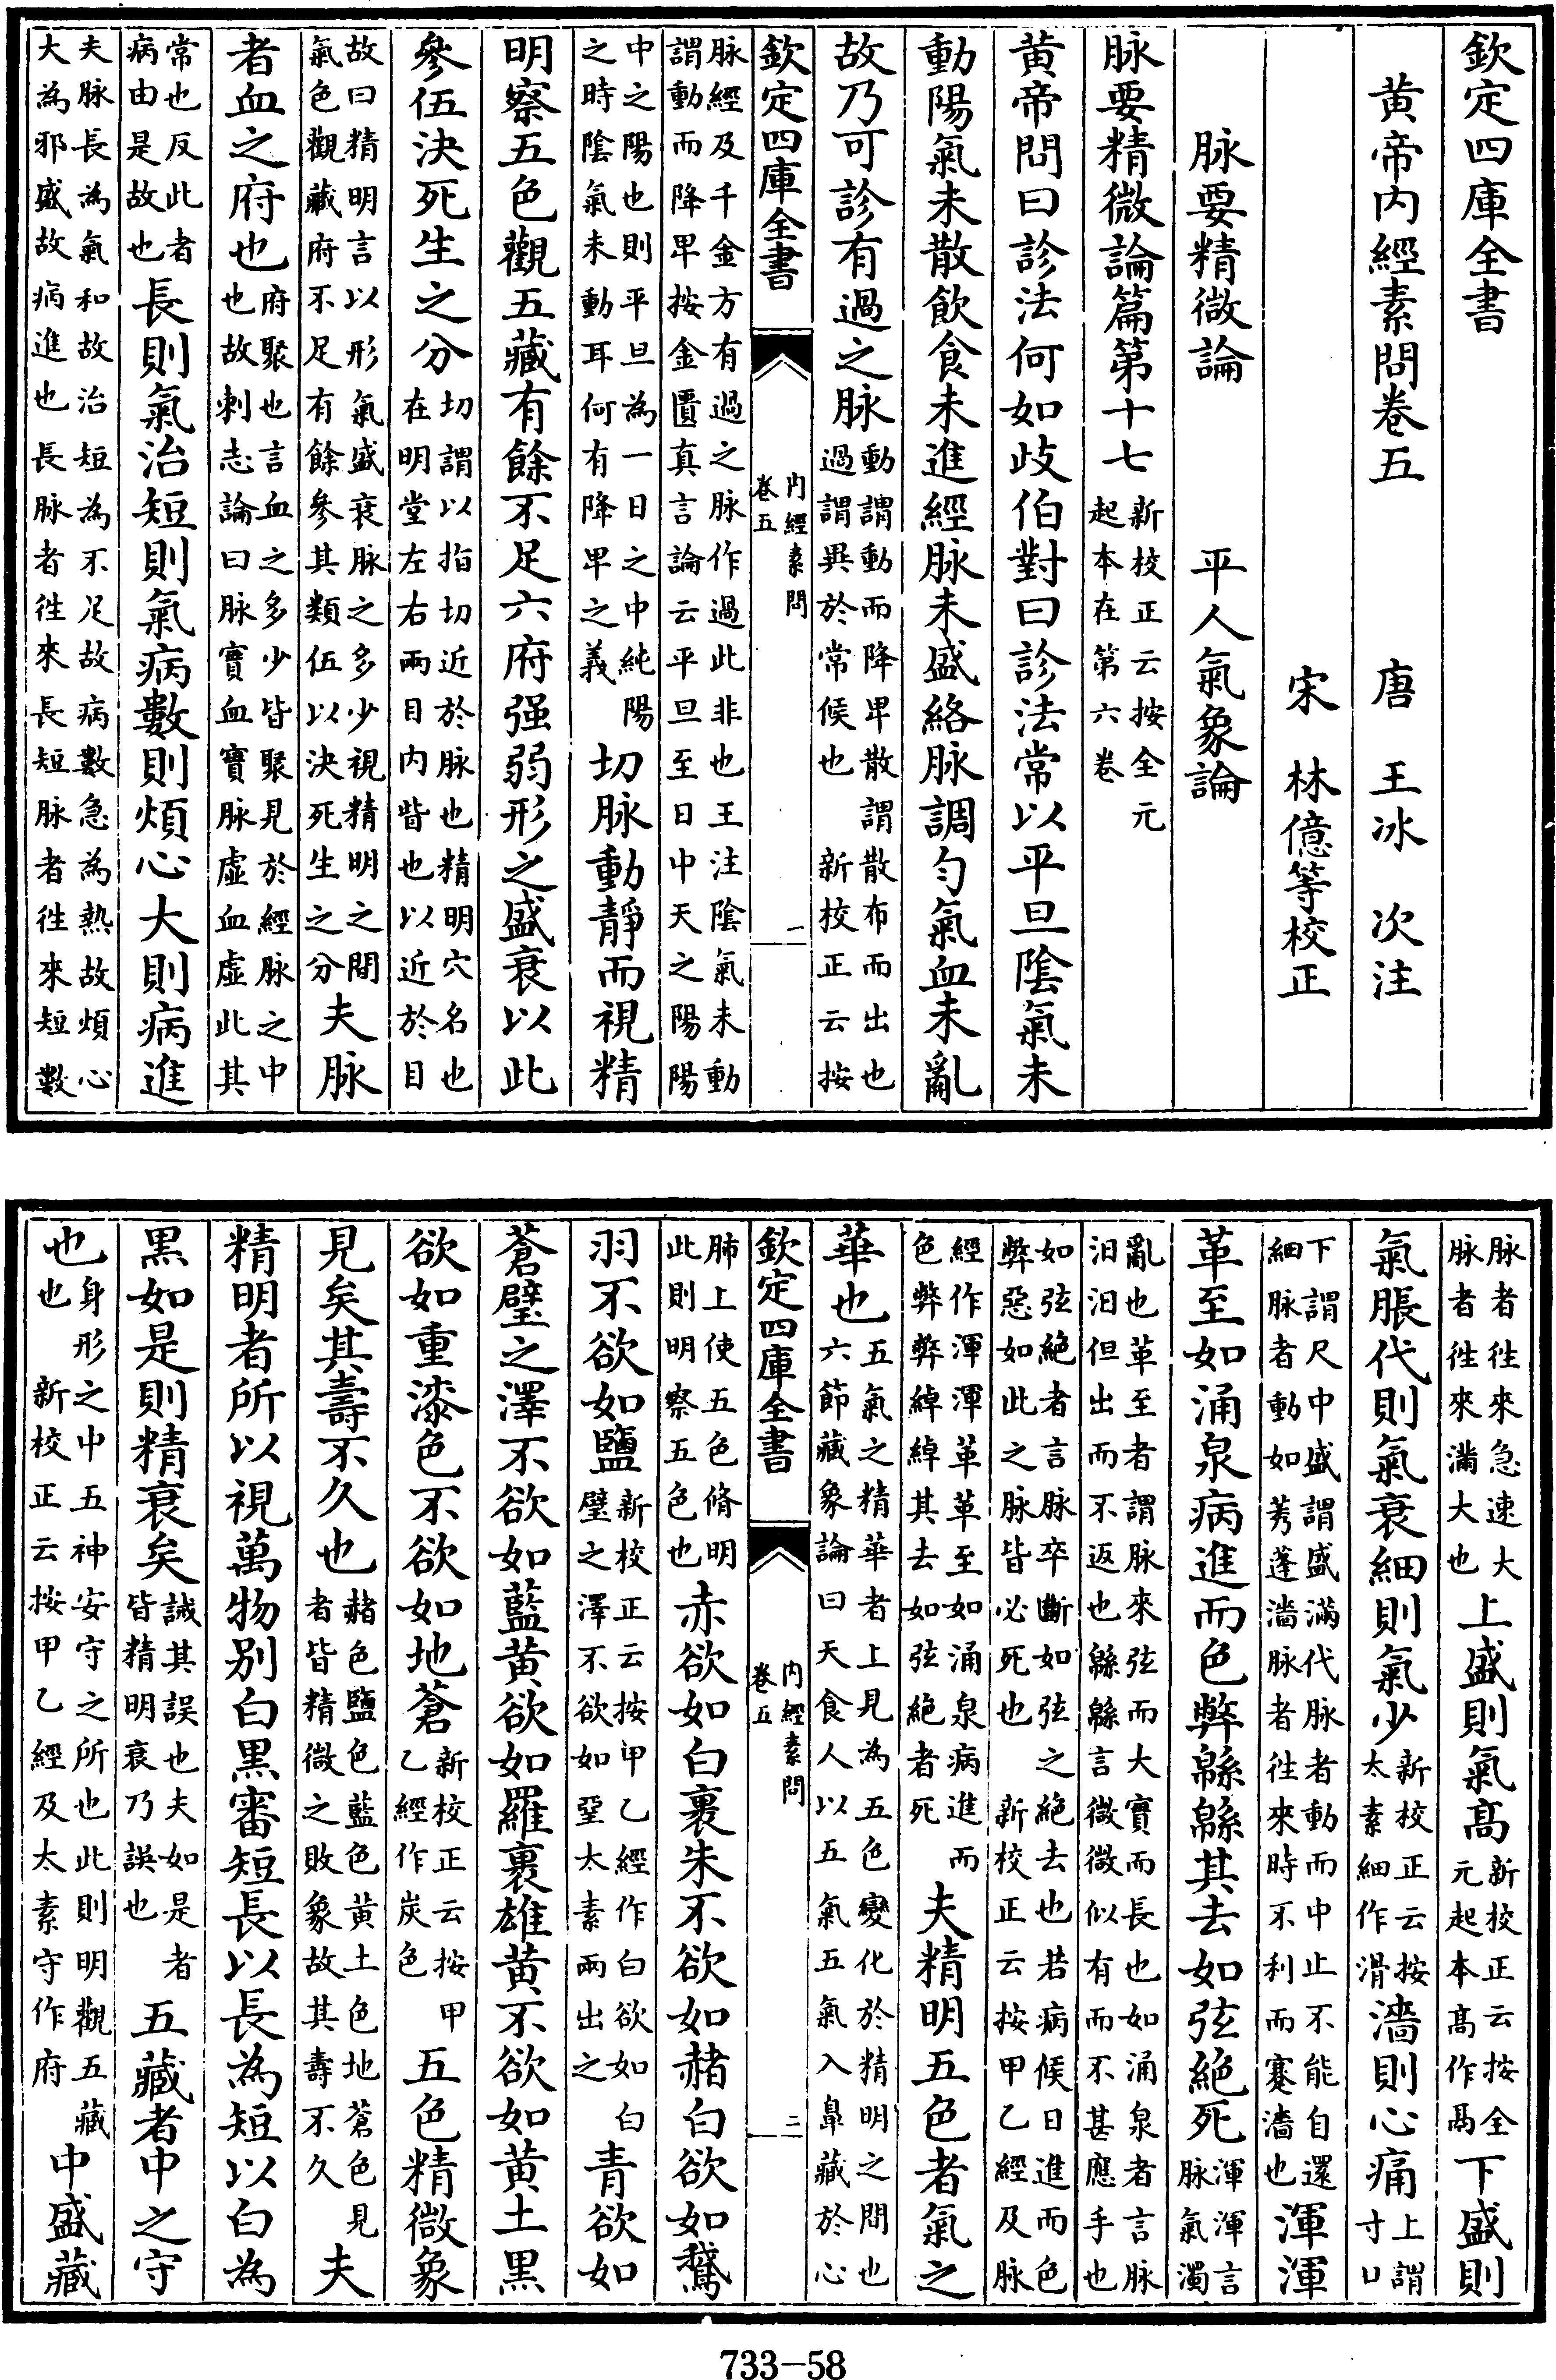 欽定四庫全書
黄帝内經素問卷五 唐 王冰 次注
宋 林億等校正
脉要精微論 平人氣象論
脉要精微論篇第十七 新校正云按全元起本在第六卷
黄帝問曰診法何如歧伯對曰診法常以平旦隂氣未
動陽氣未散飲食未進經脉未盛絡脉調勻氣血未亂
故乃可診有過之脉 動謂動而降卑散謂散布而出也過謂異於常候也 新校正云按
欽定四庫全書 内經素問 卷五 一
脉經及千金方有過之脉作過此非也王注隂氣未動謂動而降卑按金匱真言論云平旦至日中天之陽陽
中之陽也則平旦為一日之中純陽之時隂氣未動耳何有降卑之義 切脉動靜而視精
明察五色觀五藏有餘不足六府强弱形之盛衰以此
參伍決死生之分 切謂以指切近於脉也精明穴名也在明堂左右兩目内眥也以近於目
故曰精明言以形氣盛衰脉之多少視精明之間氣色觀藏府不足有餘參其類伍以決死生之分 夫脉
者血之府也 府聚也言血之多少皆聚見於經脉之中也故刺志論曰脉實血實脉虛血虛此其
常也反此者病由是故也 長則氣治短則氣病數則煩心大則病進
夫脉長為氣和故治短為不足故病數急為熱故煩心大為邪盛故病進也長脉者徃來長短脉者徃來短數
脉者徃來急速大脉者徃來滿大也 上盛則氣髙 新校正云按全元起本髙作鬲 下盛則
氣脹代則氣衰細則氣少 新校正云按太素細作滑 濇則心痛 上謂寸口
下謂尺中盛謂盛滿代脉者動而中止不能自還細脉者動如莠蓬濇脉者徃來時不利而蹇濇也 渾渾
革至如涌泉病進而色弊緜緜其去如弦絶死 渾渾言脉氣濁
亂也革至者謂脉來弦而大實而長也如涌泉者言脉汩汩但出而不返也緜緜言微微似有而不甚應手也
如弦絶者言脉卒斷如弦之絶去也若病候日進而色弊惡如此之脉皆必死也 新校正云按甲乙經及脉
經作渾渾革革至如涌泉病進而色弊弊綽綽其去如弦絶者死 夫精明五色者氣之
華也 五氣之精華者上見為五色變化於精明之間也六節藏象論曰天食人以五氣五氣入鼻藏於心
欽定四庫全書 内經素問 卷五 二
肺上使五色脩明此則明察五色也 赤欲如白裹朱不欲如赭白欲如鵞
羽不欲如鹽 新校正云按甲乙經作白欲如白璧之澤不欲如堊太素兩出之 青欲如
蒼璧之澤不欲如藍黄欲如羅裹雄黄不欲如黄土黑
欲如重漆色不欲如地蒼 新校正云按甲乙經作炭色 五色精微象
見矣其壽不久也 赭色鹽色藍色黄土色地蒼色見者皆精微之敗象故其壽不久 夫
精明者所以視萬物别白黑審短長以長為短以白為
黑如是則精衰矣 誡其誤也夫如是者皆精明衰乃誤也 五藏者中之守
也 身形之中五神安守之所也此則明觀五藏也 新校正云按甲乙經及太素守作府 中盛藏
733-58